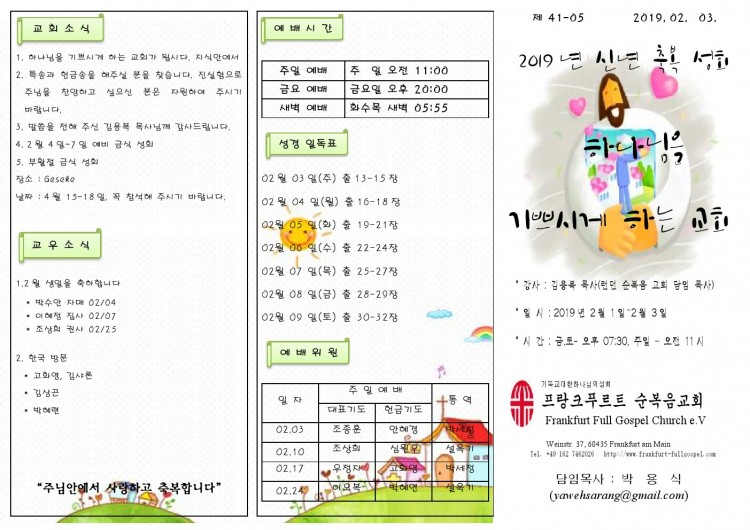 교 회 소 식
1. 하나님을 기쁘시게 하는 교회가 됩시다. 지식안에서
2. 특송과 헌금송을 해주실 분을 찾습니다. 진실함으로
주님을 찬양하고 싶으신 분은 자원하여 주시기
바랍니다.
3. 말씀을 전해 주신 김용복 목사님께 감사드립니다.
4. 2월 4일-7일 예비 금식 성회
5. 부활절 금식 성회
장소 : Geseke
날짜 : 4월 15-18일, 꼭 참석해 주시기 바랍니다.
교 우 소 식
1.2월 생일을 축하합니다
• 박수안 자매 02/04
• 이혜정 집사 02/07
• 조상희 권사 02/25
2. 한국 방문
• 고화영, 김샤론
• 김성곤
• 박혜련
“주님안에서 사랑하고 축복합니다”
예 배 시 간
주일 예배 주 일 오전 11:00
금요 예배 금요일 오후 20:00
새벽 예배 화수목 새벽 05:55
성경 일독표
02월 03일(주) 출 13-15장
02월 04일(월) 출 16-18장
02월 05일(화) 출 19-21장
02월 06일(수) 출 22-24장
02월 07일(목) 출 25-27장
02월 08일(금) 출 28-29장
02월 09일(토) 출 30-32장
예 배 위 원
일 자 주 일 예 배 통 역
대표기도 헌금기도
02.03 조종훈 안혜경 박세정
02.10 조상희 심원우 설욱기
02.17 우정자 고화영 박세정
02.24 이요복 박혜연 설욱기
제 41-05 2019. 02. 03.
2019 년 신년 축복 성회
하나님을
기쁘시게 하는 교회
* 강사 : 김용복 목사(런던 순복음 교회 담임 목사)
* 일 시 : 2019년 2월 1일~2월 3일
* 시 간 : 금,토- 오후 07:30, 주일 - 오전 11시
기독교대한하나님의성회
프랑크푸르트 순복음교회
Frankfurt Full Gospel Church e.V
Weinstr. 37, 60435 Frankfurt am Main
Tel. +49 162 7462026 http://www.frankfurt-fullgospel.com
담임목사 : 박 응 식
(yawehsarang@gmail.com)